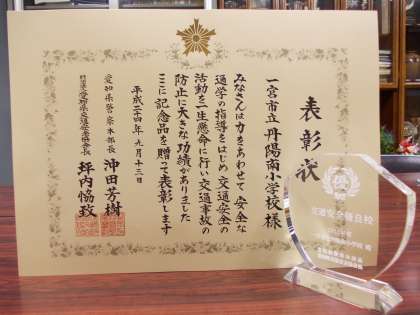 表彰状
一宮市立丹陽南小学校 様
みなさんは力をあわせて安全な
通学の指導をはじめ交通安全の
活動を一生懸命に行い交通事故の
防止に大きな功績がありました
ここに記念品を贈って表彰します
平成二十四年九月十三日
愛知県警察本部長 沖田芳樹
坪内恊致
優
交通安全優良校